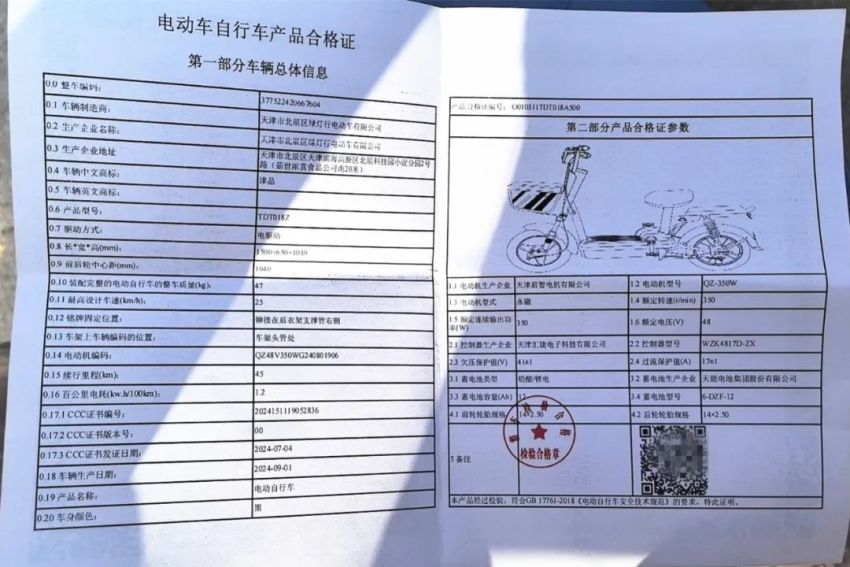 电动车自行车产品合格证
第一部分车辆总体信息
0.0 整车编码: 377522420667604
0.1 车辆制造商: 天津市北辰区绿灯行电动车有限公司
0.2 生产企业名称: 天津市北辰区绿灯行电动车有限公司
0.3 生产企业地址 天津市北辰区天津滨海高新区北辰科技园小淀分园2号
路（ 食品公司南20米）
0.4 车辆中文商标: 津品
0.5 车辆英文商标:
0.6 产品型号: TDT018Z
0.7 驱动方式: 电驱动
0.8 长*宽*高(mm): 1500*650*1010
0.9 前后轮中心距(mm): 1040
0.10 装配完整的电动自行车的整车质量(kg): 47
0.11 最高设计车速(km/h): 25
0.12 铭牌固定位置: 铆接在后衣架支撑管右侧
0.13 车架上车辆编码的位置: 车架头管处
0.14 电动机编码: QZ48V350WG240801906
0.15 续行里程(km): 45
0.16 百公里电耗(kw.h/100km): 1.2
0.17.1 CCC证书编号: 2024151119052836
0.17.2 CCC证书版本号: 00
0.17.3 CCC证书发证日期: 2024-07-04
0.18 车辆生产日期: 2024-09-01
0.19 产品名称: 电动自行车
0.20 车身颜色: 黑
产品合格证编号: O0105117DT018A500
第二部分产品合格证参数
1.1 电动机生产企业 天津启智电机有限公司 1.2 电动机型号 QZ-350W
1.3 电动机型式 永磁 1.4 额定转速(r/min) 350
1.5 额定连续输出功率(W) 350 1.6 额定电压(V) 48
2.1 控制器生产企业 天津汇陵电子科技有限公司 2.2 控制器型号 WZK4817D-ZX
2.3 欠压保护值(V) 41±1 2.4 过流保护值(A) 17±1
3.1 蓄电池类型 铅酸/锂电 3.2 蓄电池生产企业 天能电池集团股份有限公司
3.3 蓄电池容量(Ah) 12 3.4 蓄电池型号 6-DZF-12
4.1 前轮轮胎规格 14×2.50 4.2 后轮轮胎规格 14×2.50
5 备注
检验合格章
本产品经过检验，符合GB 17761-2018《电动自行车安全技术规范》的要求，特此证明。